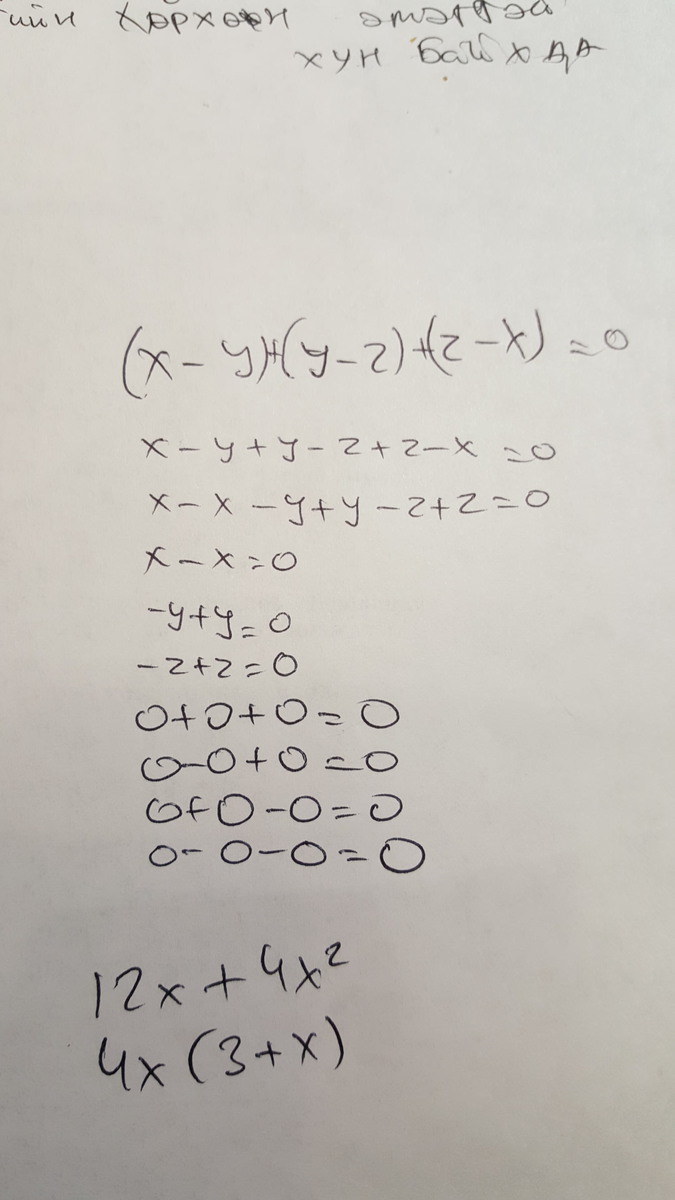 гийн хөрхөөн эмэгтэй
хүн байхад
(x-y)+(y-z)+(z-x)=0
x-y+y-z+z-x=0
x-x-y+y-z+z=0
x-x=0
-y+y=0
-z+z=0
0+0+0=0
0-0+0=0
0+0-0=0
0-0-0=0
12x+4x²
4x(3+x)